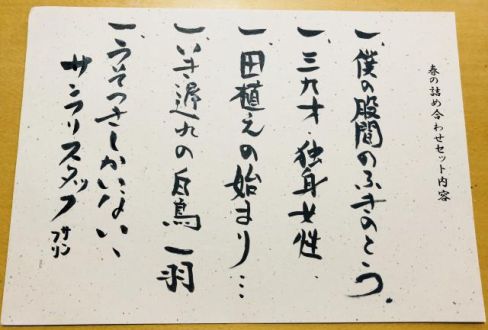 春の詰め合わせセット内容
一、僕の股間のふきのとう。
一、三九才・独身女性.
一、田植えの始まり…
一、いき遅れの白鳥一羽
一、うそつきしかいない、
サンラリスタッフ
フサリン